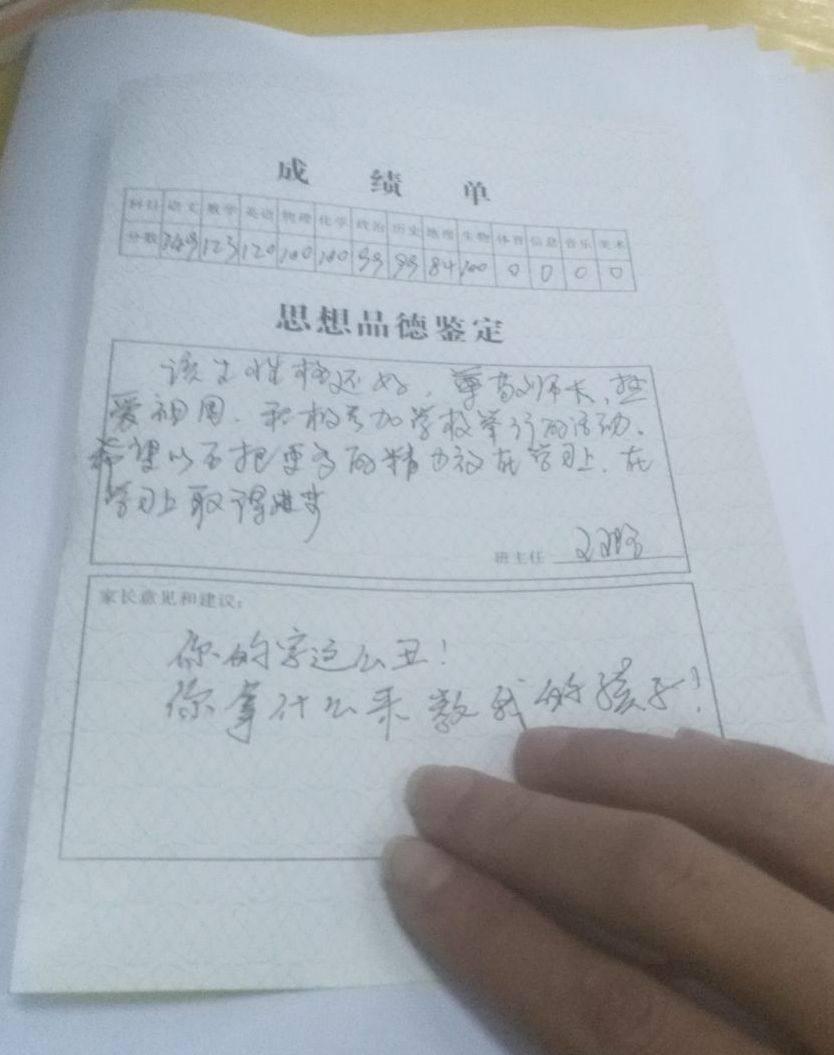 成绩单
科目 语文 数学 英语 物理 化学 政治 历史 地理 生物 体育 信息 音乐 美术
分数 123 120 100 100 99 99 84 100 0 0 0 0
思想品德鉴定
该生性格还好，尊敬师长，热
爱祖国，积极参加学校举行的活动，
希望以后把更多的精力放在学习上，在
学习上取得进步
班主任
家长意见和建议：
你的字这么丑！
你拿什么来教我的孩子！